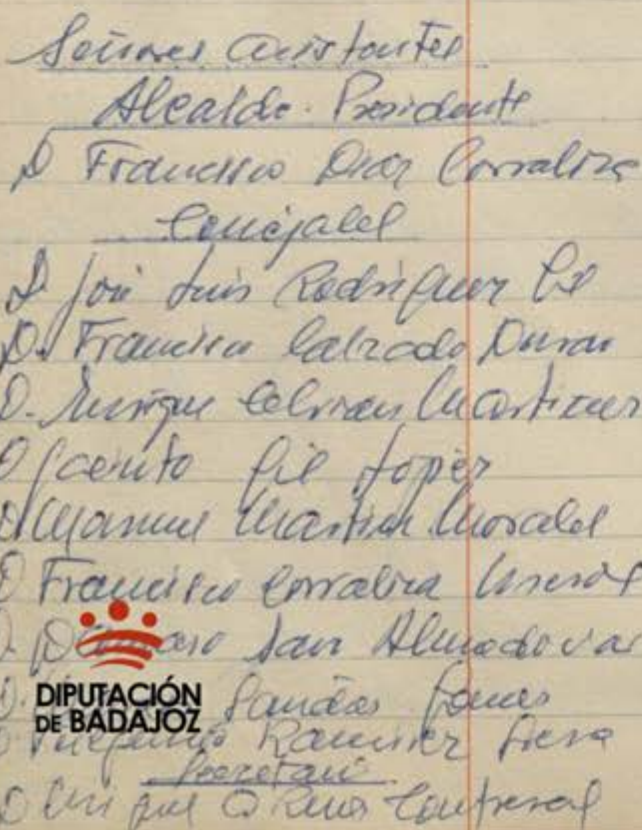 Señores asistentes
Alcalde-Presidente
D Francisco Diaz Corraliza
Concejales
D José Luis Rodriguez Gil
D. Francisco Calzado Duran
D. Enrique Cebrian Martinez
D Jacinto Gil Lopez
D Manuel Martin Morales
D Francisco Corraliza
D. San Almodovar
D.
D Ramirez
Secretario
D Enrique
DIPUTACIÓN
DE BADAJOZ